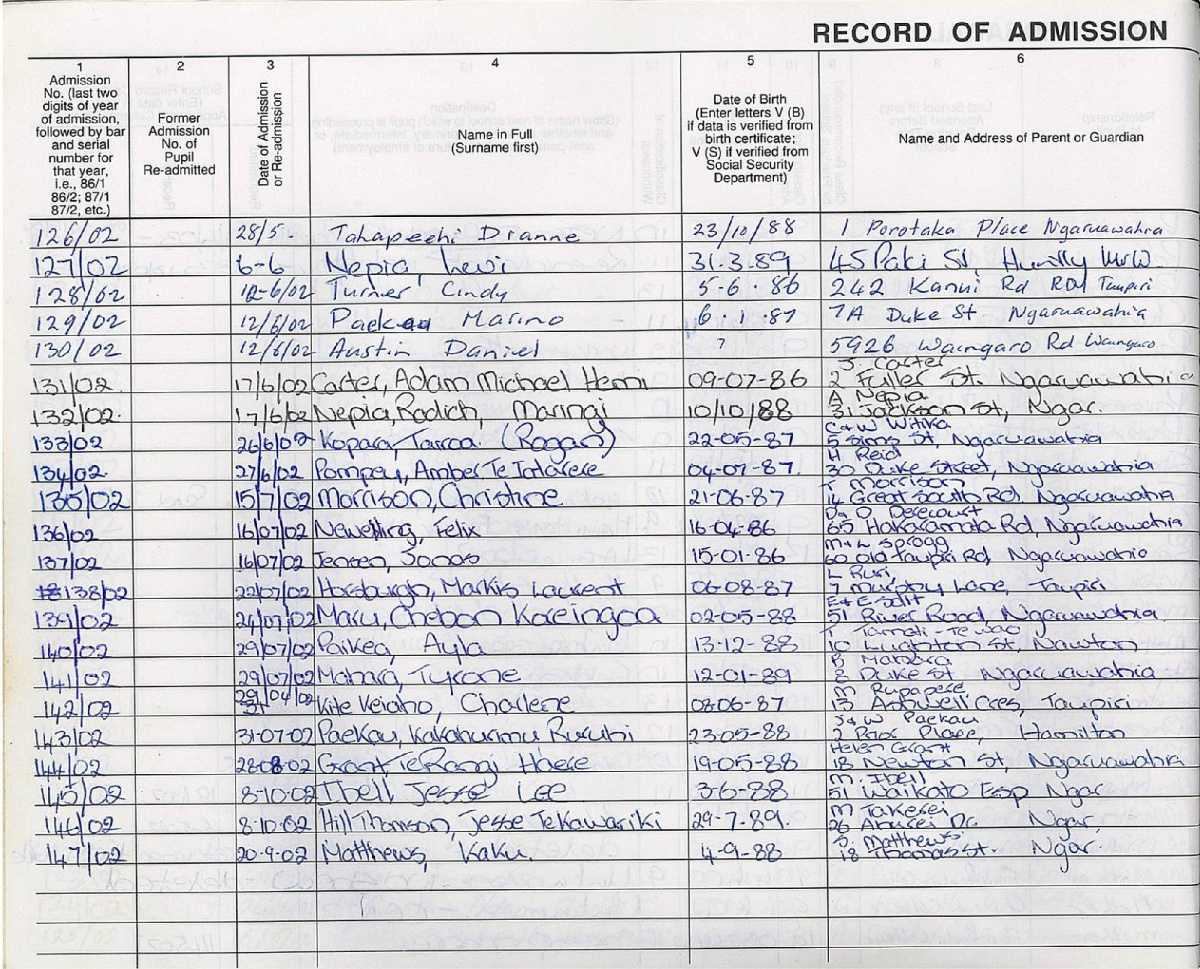 RECORD OF ADMISSION
1 2 3 4 5 6
Admission No. (last two digits of year of admission, followed by bar and serial number for that year, i.e., 86/1 86/2; 87/1 87/2, etc.)
Former Admission No. of Pupil Re-admitted
Date of Admission or Re-admission
Name in Full (Surname first)
Date of Birth (Enter letters V (B) if data is verified from birth certificate; V (S) if verified from Social Security Department)
Name and Address of Parent or Guardian
126/02 28/5. Tahapeehi Dianne 23/10/88 1 Porotaka Place Ngaruawahia
127/02 6-6 Nepia, Lewi 31.3.89 45 Paki St, Huntly
128/02 12-6/02 Turner Cindy 5-6.86 242 Kainui Rd RD1 Taupiri
129/02 12/6/02 Paekau Marino 6.1.87 7A Duke St Ngaruawahia
130/02 12/6/02 Austin Daniel ? 5926 Waingaro Rd Waingaro
J. Carter
131/02 17/6/02 Carter, Adam Michael Hemi 09-07-86 2 Fuller St. Ngaruawahia
A Nepia
132/02. 17/6/02 Nepia Radich, Maringi 10/10/88 31 Jackson St, Ngar.
C & W Witika
133/02 26/6/02 Kopara, (Rogan) 22-05-87 5 Sims St, Ngaruawahia
H Reid
134/02. 27/6/02 Pompey, Amber Te 04-07-87. 30 Duke Street, Ngaruawahia
T Morrison
135/02 15/7/02 Morrison, Christine 21-06-87 14 Great South Rd Ngaruawahia
D & D Derecourt
136/02 16/07/02 Newelling, Felix 16-04-86 65 Hakarimata Rd, Ngaruawahia
M & L Sprogg
137/02 16/07/02 Jensen, Jonas 15-01-86 60 Old Taupiri Rd, Ngaruawahia
L Ruri,
138/02 22/07/02 Horsburgh, Markis Laurent 06-08-87 7 Murphy Lane, Taupiri
E & E Salt
139/02 24/07/02 Maru, Chebon Kareingoa 02-05-88 51 River Road, Ngaruawahia
T Tamati-Te Wao
140/02 29/07/02 Paikea, Ayla 13-12-88 10 St, Newton
141/02 29/07/02 Tyrone 12-01-89 8 Duke St Ngaruawahia
M Rupapere
142/02 Kite Keiaho, Charlene 08-06-87 13 Ashwell Cres, Taupiri
J & W Paekau
143/02 31-07-02 Paekau, Kakahurimu Ruruhi 23-05-88 2 Place, Hamilton
Helen Grant
144/02 28-08-02 Grant, Te Rangi Haere 19-05-88 18 Newton St, Ngaruawahia
M. Ibell
145/02 8-10-02 Ibell, Jesse Lee 3-6-88 51 Waikato Esp Ngar.
M Takerei
146/02 8-10-02 Hill Thomson, Jesse Te Kawariki 29-7-89. 26 Dr. Ngar.
S. Matthews
147/02 20-9-02 Matthews, Kaku. 4-9-88 18 Thomas St. Ngar.